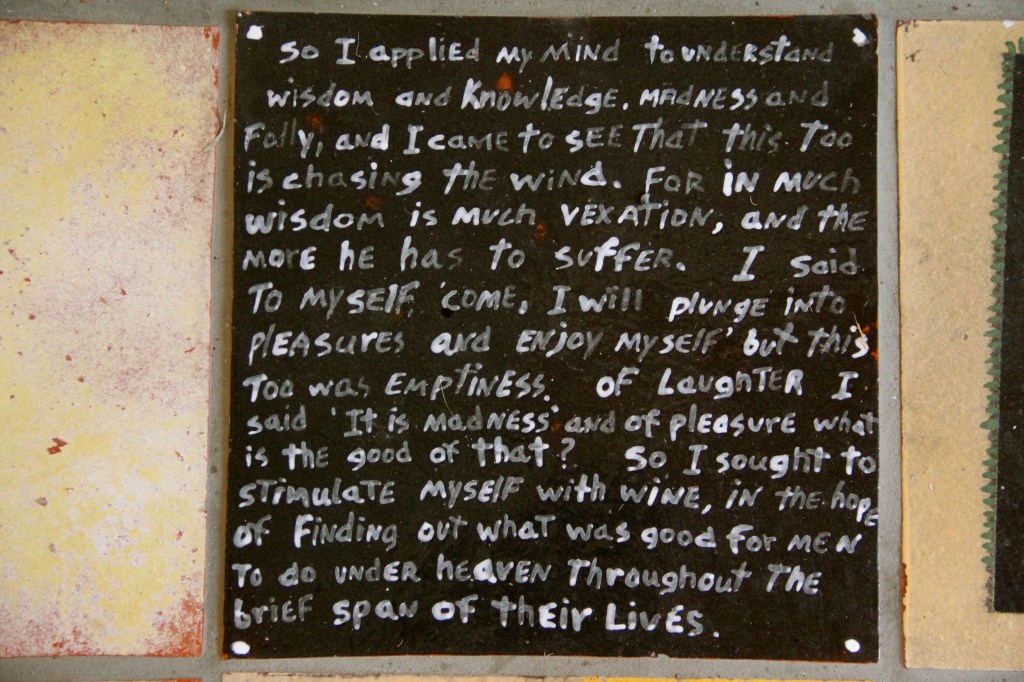 So I applied my mind to understand
wisdom and knowledge. madness and
Folly, and I came to see that this too
is chasing the wind. For in much
wisdom is much vexation, and the
more he has to suffer. I said
to myself, 'come, I will plunge into
pleasures and enjoy myself' but this
too was emptiness. Of Laughter I
said 'It is madness' and of pleasure what
is the good of that? So I sought to
stimulate myself with wine, in the hope
of finding out what was good for men
to do under heaven throughout the
brief span of their Lives.